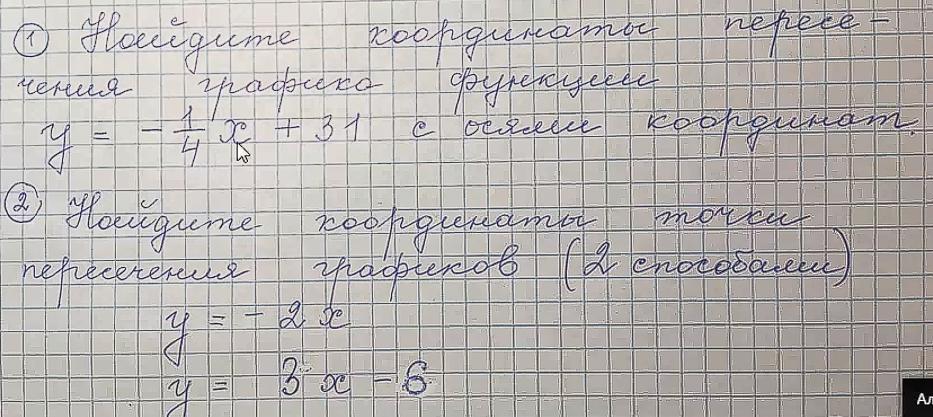 ① Найдите координаты пересе-
чения графика функции
y = - 1/4 x + 31 с осями координат.
② Найдите координаты точки
пересечения графиков (2 способами)
y = - 2x
y = 3x - 6
Ал